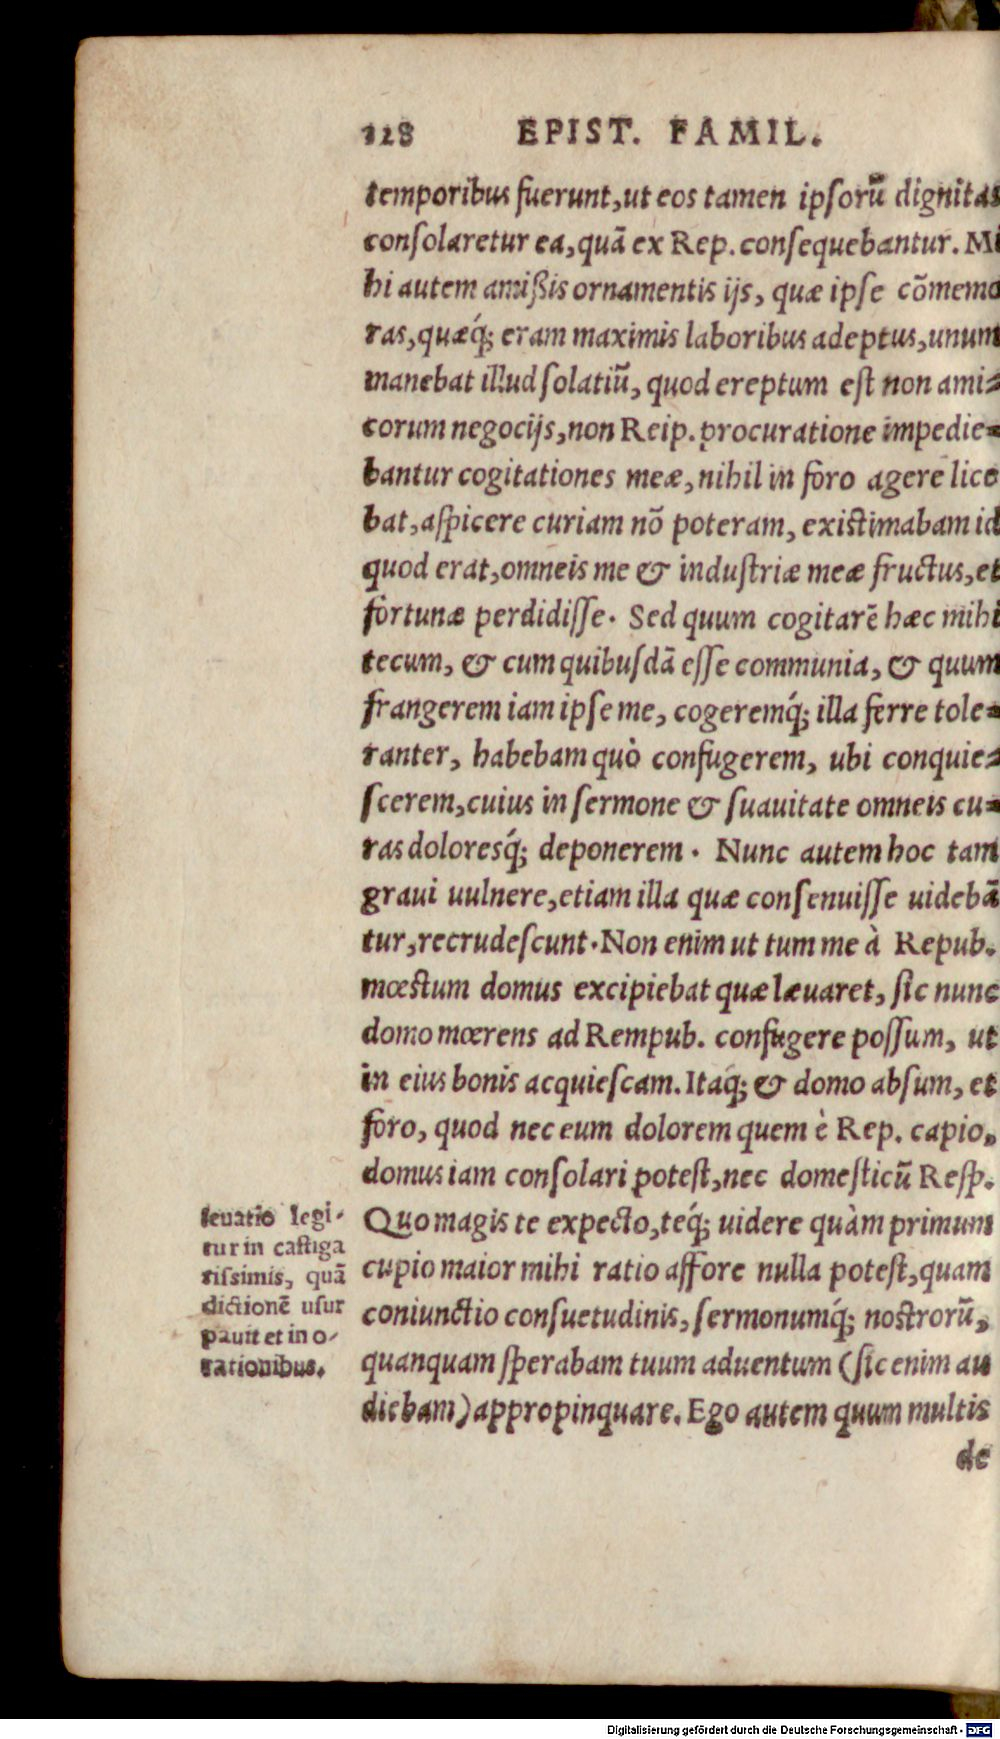 128 EPIST. FAMIL.
temporibus fuerunt,ut eos tamen ipsorũ dignitas
consolaretur ea,quã ex Rep. consequebantur. Mi
hi autem amißis ornamentis ijs, quæ ipse cõmemo
ras,quæq́; eram maximis laboribus adeptus,unum
manebat illud solatiũ, quod ereptum est non ami-
corum negocijs,non Reip. procuratione impedie-
bantur cogitationes meæ, nihil in foro agere lice
bat,aspicere curiam nõ poteram, existimabam id
quod erat,omneis me & industriæ meæ fructus,et
fortunæ perdidisse. Sed quum cogitarẽ hæc mihi
tecum, & cum quibusdã esse communia, & quum
frangerem iam ipse me, cogeremq́; illa ferre tole-
ranter, habebam quò confugerem, ubi conquie-
scerem,cuius in sermone & suauitate omneis cu-
ras doloresq́; deponerem. Nunc autem hoc tam
graui uulnere,etiam illa quæ consenuisse uidebã
tur,recrudescunt.Non enim ut tum me à Repub.
mœstum domus excipiebat quæ læuaret, sic nunc
domo mœrens ad Rempub. confugere possum, ut
in eius bonis acquiescam. Itaq́; & domo absum, et
foro, quod nec eum dolorem quem è Rep. capio,
domus iam consolari potest,nec domesticũ Resp.
Quo magis te expecto,teq́; uidere quàm primum
cupio maior mihi ratio affore nulla potest,quam
coniunctio consuetudinis, sermonumq́; nostrorũ,
quanquam sperabam tuum aduentum (sic enim au
diebam) appropinquare. Ego autem quum multis
de
leuatio legi-
tur in castiga
tissimis, quã
dictionẽ usur
pauit et in o-
rationibus.
Digitalisierung gefördert durch die Deutsche Forschungsgemeinschaft - DFG